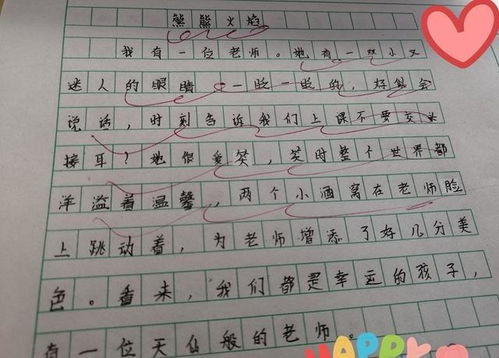 熊熊火焰
我有一位老师。她有一双小又
迷人的眼睛,一眨一眨的,好似会
说话,时刻告诉我们上课不要交头
接耳?她很爱笑,笑时整个世界都
洋溢着温馨,两个小酒窝在老师脸
上跳动着,为老师增添了好几分美
色。看来,我们都是幸运的孩子,
有一位天仙般的老师。
HAPPY